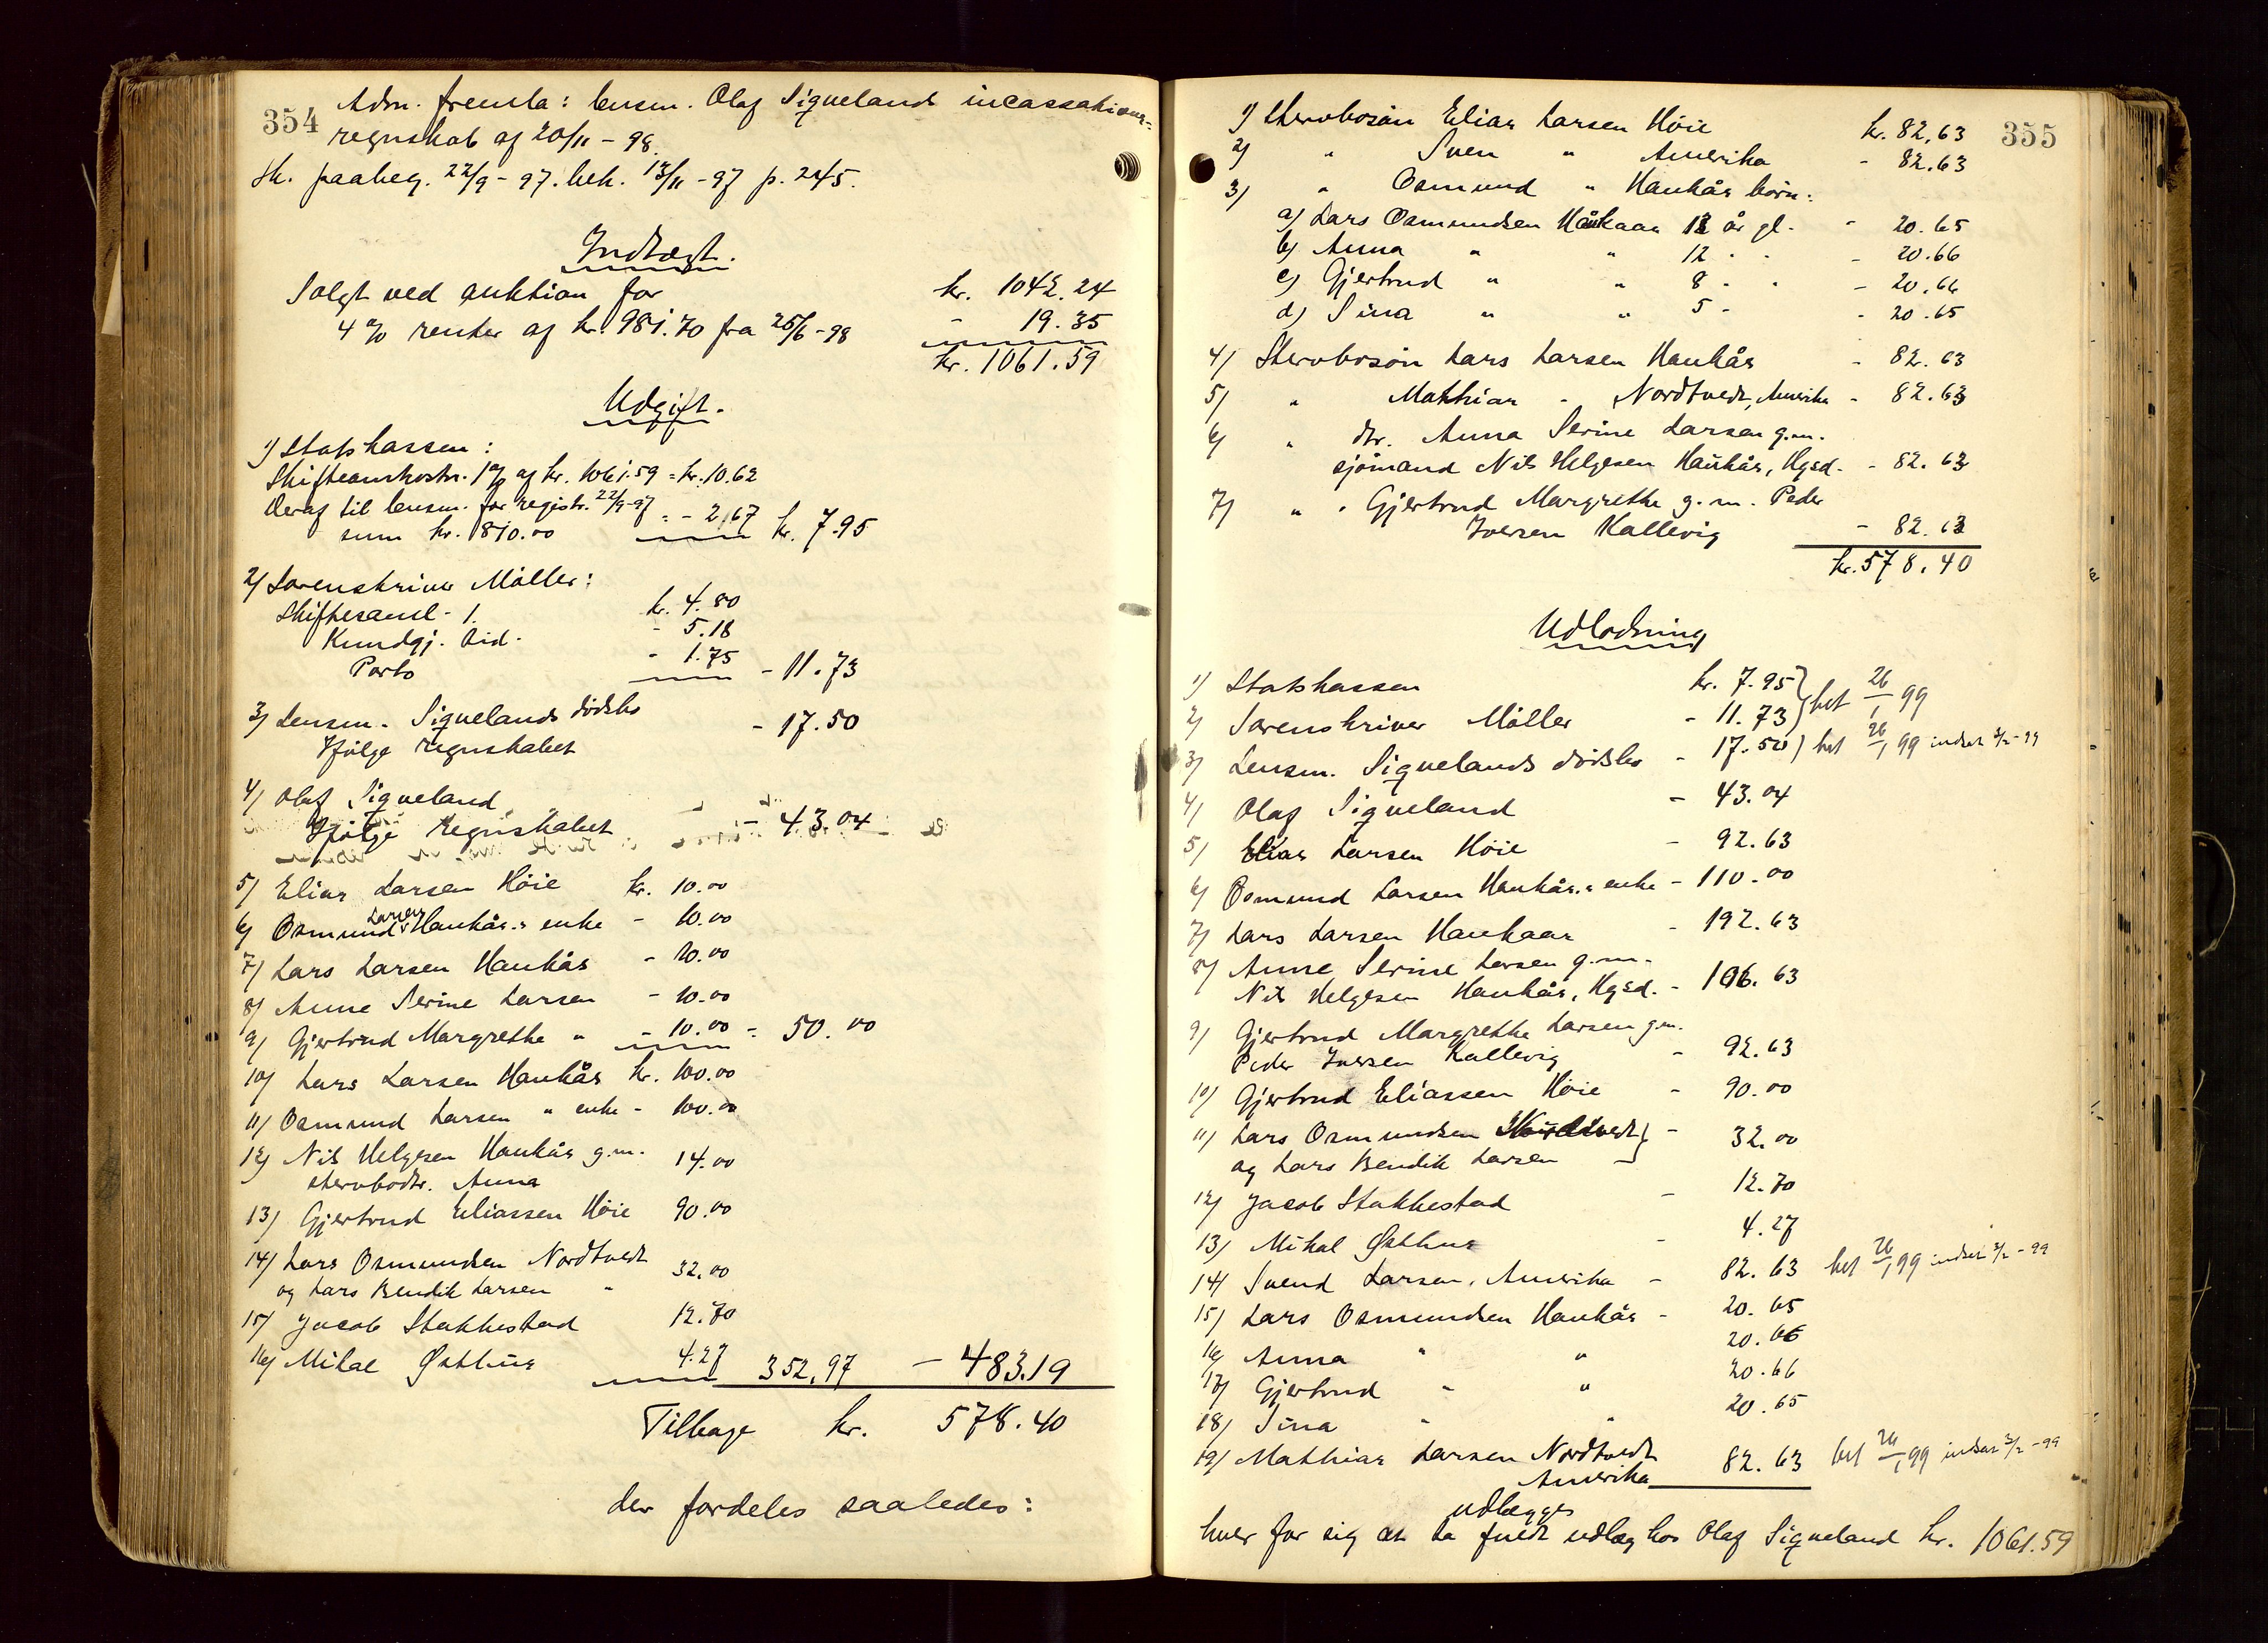 354
Adm. fremla: lensm. Olaf Siqueland incassations=
regnskab af 20/11 - 98.
Sk. paabeg. 22/9 - 97. bek. 13/11 - 97 p. 245.
Indtægt.
Solgt ved auktion for kr. 1042.24
4 % renter af kr. 981.70 fra 25/6 - 98 - 19.35
kr. 1061.59
Udgift.
1) Statskassen:
Skifteomkostn. 1 % af kr. 1061.59 = kr. 10.62
Deraf til lensm. for registr. 22/9-97
sum kr. 810.00 = - 2.67 kr. 7.95
2/ Sorenskriver Möller:
Skiftesaml. 1. kr. 4.80
Kundgj. Aid. - 5.18
Porto - 1.75 - 11.73
3/ Lensm. Siquelands dödsbo
Ifölge regnskabet - 17.50
4/ Olaf Siqueland
Ifölge regnskabet - 43.04
5/ Elias Larsen Höie kr. 10.00
6/ Osmund Larsen Haukås.s enke - 10.00
7/ Lars Larsen Haukås - 10.00
8/ Anne Serine Larsen - 10.00
9/ Gjertrud Margrethe " - 10.00 - 50.00
10/ Lars Larsen Haukås kr. 100.00
11/ Osmund Larsen " enke - 100.00
12/ Nils Helgesen Haukås g.m. 14.00
stervbodtr. Anna
13/ Gjertrud Eliassen Höie 90.00
14/ Lars Osmundsen Nordtvedt
og Lars Bendik Larsen " 32.00
15/ Jacob Stakkestad 12.70
16/ Mikal Østhus 4.27 352.97 - 483.19
Tilbage kr. 578.40
der fordeles saaledes:
355
1/ Stervbosön Elias Larsen Höie kr. 82,63
2/ " Sven " Amerika - 82.63
3/ " Osmund " Haukås börn:
a) Lars Osmundsen Haukaas 13 år gl. - 20.65
b) Anna " " 12 " " - 20.66
c) Gjertrud " " 8 " " - 20.66
d) Sina " " 5 " - 20.65
4/ Stervbosön Lars Larsen Haukås - 82.63
5/ " Mathias " Nordtvedt, Amerika - 82.63
6/ " dtr. Anna Serine Larsen g.m.
sjömand Nils Helgesen Haukås, Hgsd. - 82.63
7/ " " Gjertrud Margrethe g.m. Peder
Iversen Kallevig - 82.63
kr. 578.40
Udlodning
1) Statskassen kr. 7.95 } bet 26/1 99
2/ Sorenskriver Möller - 11.73
3/ Lensm. Siquelands dödsbo - 17.50 ) bet 26/1 99 indsat 3/2-99
4/ Olaf Siqueland - 43.04
5/ Elias Larsen Höie - 92.63
6/ Osmund Larsen Haukås.s enke - 110.00
7/ Lars Larsen Haukaas - 192.63
8/ Anne Serine Larsen g.m.
Nils Helgesen Haukås, Hgsd. - 106.63
9/ Gjertrud Margrethe Larsen g.m.
Peder Iversen Kallevig - 92.63
10/ Gjertrud Eliassen Höie - 90.00
11/ Lars Osmundsen Nordtvedt } - 32.00
og Lars Bendik Larsen
12/ Jacob Stakkestad - 12.70
13/ Mikal Østhus - 4.27
14/ Svend Larsen, Amerika - 82.63 bet 26/1 99 indsat 3/2-99
15/ Lars Osmundsen Haukås - 20.65
16/ Anna " " 20.66
17/ Gjertrud " " 20.66
18/ Sina " " 20.65
19/ Mathias Larsen Nordtvedt 82.63 bet 26/1 99 indsat 3/2-99
Amerika
udlægges
hver for sig at ta fuldt udlæg hos Olaf Siqueland kr. 1061.59